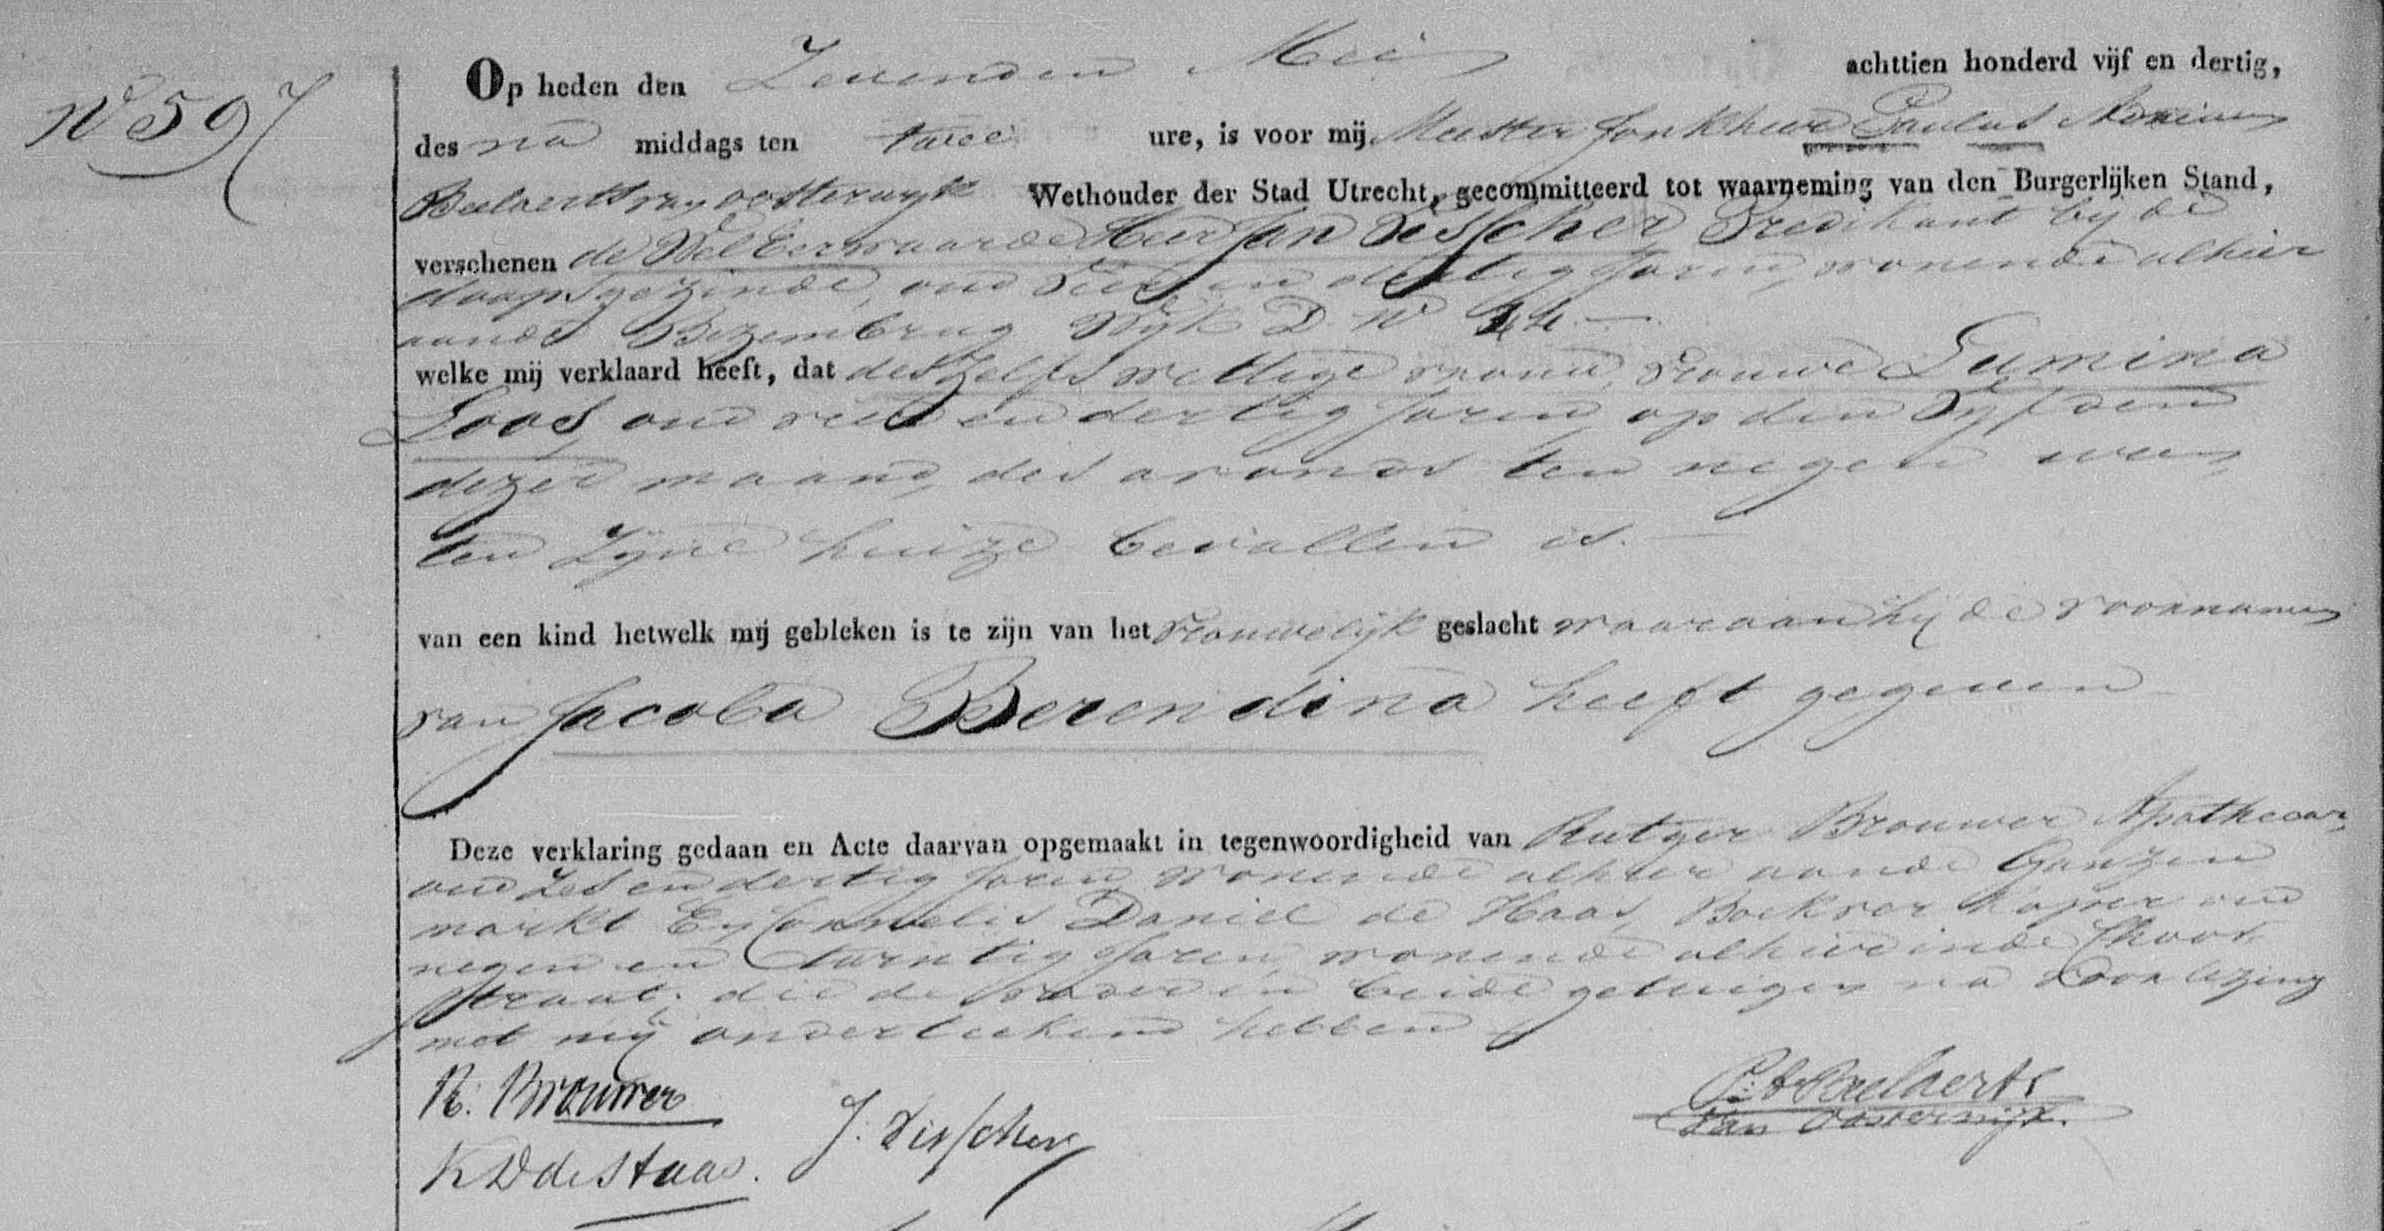 No 597
Op heden den Zevenden Mei achttien honderd vijf en dertig,
des na middags ten twee ure, is voor mij Meester Jonkheer Paulus
Beelaerts van oosterwijk Wethouder der Stad Utrecht, gecommitteerd tot waarneming van den Burgerlijken Stand,
verschenen de Wel Eerwaarde Heer Jan Visscher, Predikant bij de
doopsgezinde, oud vier en dertig Jaren, wonende alhier
aan de Bezembrug Wijk D. No
welke mij verklaard heeft, dat deszelfs wettige vrouw, vrouwe Lumina
Loos, oud vier en dertig Jaren, op den Vijfden
dezer maand, des avonds ten negen uren,
ten Zijne huize bevallen is.
van een kind hetwelk mij gebleken is te zijn van het vrouwelijk geslacht waaraan hij de voornamen
van Jacoba Berendina heeft gegeven
Deze verklaring gedaan en Acte daarvan opgemaakt in tegenwoordigheid van Rutger Brouwer Apothecar,
oud Zes en dertig Jaren wonende alhier aan de Ganzen
markt En Cornelis Daniel de Haas, Boekverkoper oud
negen en twintig Jaren, wonende alhier in de Choor
straat. die de vader en beide getuigen na voorlezing
met mij onderteekend hebben
R. Brouwer
J. Visscher
P: A Beelaerts
van Oosterwijk.
K D de Haas.